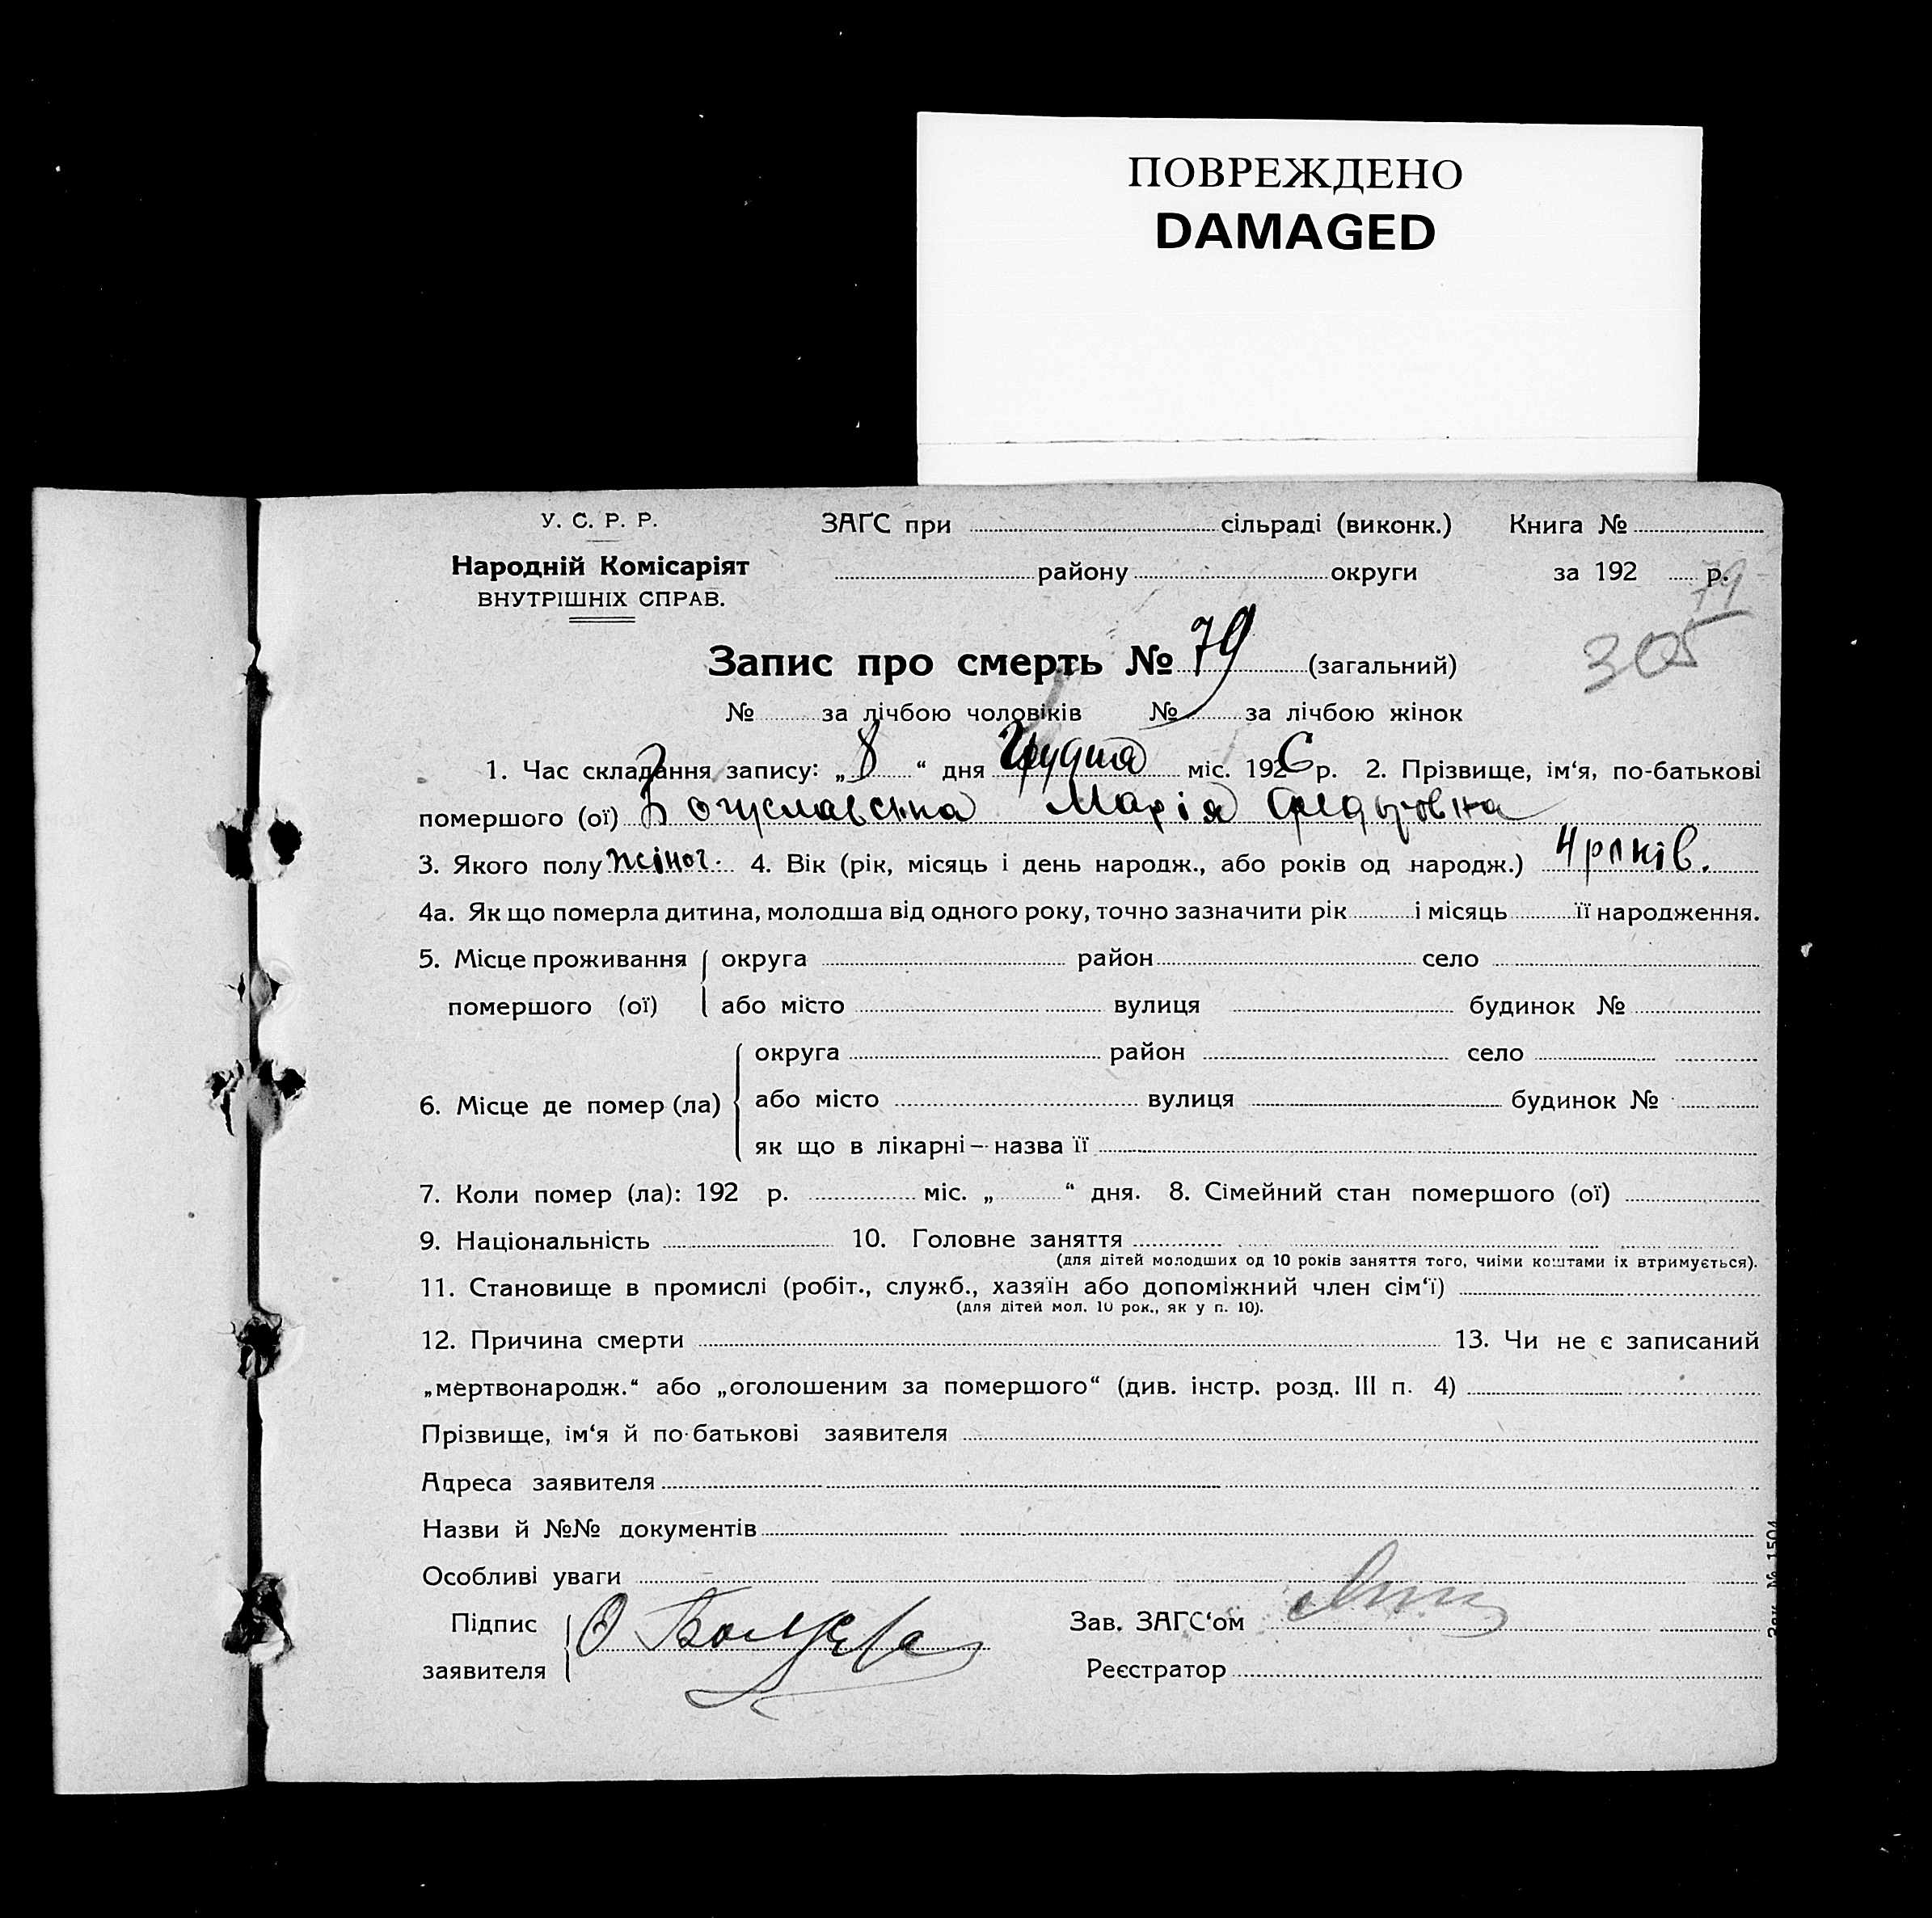 ПОВРЕЖДЕНО
DAMAGED
У. С. Р. Р.
Народній Комісаріят
ВНУТРІШНІХ СПРАВ.
ЗАГС при сільраді (виконк.) Книга №
району округи за 192 р.
79
305
Запис про смерть № 79 (загальний)
№ за лічбою чоловіків № за лічбою жінок
1. Час складання запису: „8“ дня Грудня міс. 1926 р. 2. Прізвище, ім'я, по-батькові
помершого (ої) Богуславська Марія
3. Якого полу жіноч. 4. Вік (рік, місяць і день народж., або років од народж.) 4 років.
4а. Як що померла дитина, молодша від одного року, точно зазначити рік і місяць її народження.
5. Місце проживання округа район село
помершого (ої) або місто вулиця будинок №
округа район село
6. Місце де помер (ла) або місто вулиця будинок №
як що в лікарні – назва її
7. Коли помер (ла): 192 р. міс. „ “ дня. 8. Сімейний стан помершого (ої)
9. Національність 10. Головне заняття
(для дітей молодших од 10 років заняття того, чиїми коштами їх втримується).
11. Становище в промислі (робіт., служб., хазяїн або допоміжний член сім‘ї)
(для дітей мол. 10 рок., як у п. 10).
12. Причина смерти 13. Чи не є записаний
„мертвонародж.“ або „оголошеним за помершого“ (див. інстр. розд. III п. 4)
Прізвище, ім‘я й по-батькові заявителя
Адреса заявителя
Назви й №№ документів
Особливі уваги
Підпис Зав. ЗАГС‘ом
заявителя Реєстратор
Зак. № 1504